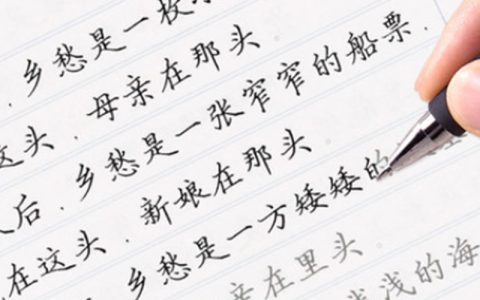 .乡愁是一枚
这头.母亲在那头
后.乡愁是一张窄窄的船票.
在这头.新娘在那头
.乡愁是一方矮矮的
亲在里头
浅的海